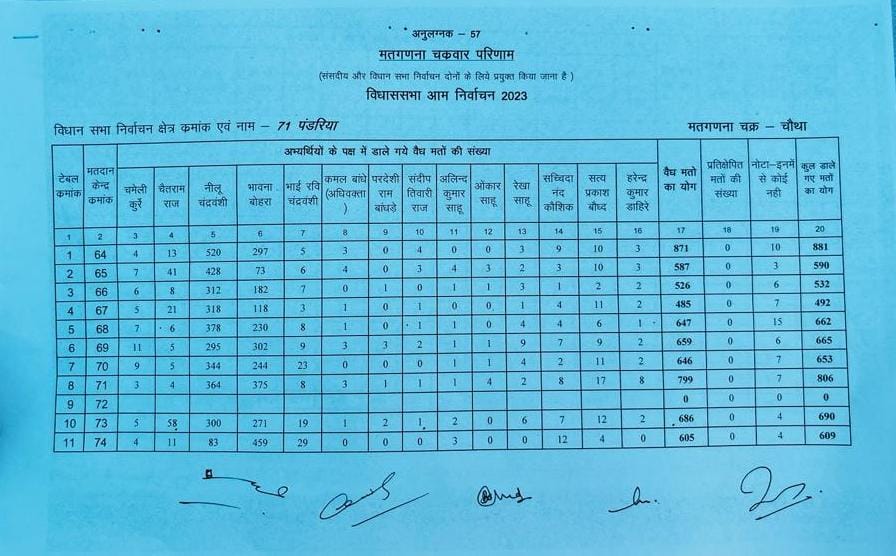 अनुलग्नक – 57
मतगणना चक्रवार परिणाम
(संसदीय और विधान सभा निर्वाचन दोनों के लिये प्रयुक्त किया जाना है)
विधाससभा आम निर्वाचन 2023
विधान सभा निर्वाचन क्षेत्र कमांक एवं नाम – 71 पंडरिया मतगणना चक्र – चौथा
टेबल कमांक मतदान केन्द्र कमांक अभ्यर्थियों के पक्ष में डाले गये वैध मतों की संख्या वैध मतो का योग प्रतिक्षेपित मतों की संख्या नोटा–इनमें से कोई नही कुल डाले गए मतों का योग
चमेली कुर्रे चैतराम राज नीलू चंद्रवंशी भावना बोहरा भाई रवि चंद्रवंशी कमल बांधे (अधिवक्ता) परदेशी राम बांधड़े संदीप तिवारी राज अलिन्द कुमार साहू ओंकार साहू रेखा साहू सच्चिदानंद कौशिक सत्य प्रकाश बौध्द हरेन्द्र कुमार डाहिरे
1 2 3 4 5 6 7 8 9 10 11 12 13 14 15 16 17 18 19 20
1 64 4 13 520 297 5 3 0 4 0 0 3 9 10 3 871 0 10 881
2 65 7 41 428 73 6 4 0 3 4 3 2 3 10 3 587 0 3 590
3 66 6 8 312 182 7 0 1 0 1 1 3 1 2 2 526 0 6 532
4 67 5 21 318 118 3 1 0 1 0 0 1 4 11 2 485 0 7 492
5 68 7 6 378 230 8 1 0 1 1 0 4 4 6 1 647 0 15 662
6 69 11 5 295 302 9 3 3 2 1 1 9 7 9 2 659 0 6 665
7 70 9 5 344 244 23 0 0 0 1 1 4 2 11 2 646 0 7 653
8 71 3 4 364 375 8 3 1 1 1 4 2 8 17 8 799 0 7 806
9 72 0 0 0 0
10 73 5 58 300 271 19 1 2 1 2 0 6 7 12 2 686 0 4 690
11 74 4 11 83 459 29 0 0 0 3 0 0 12 4 0 605 0 4 609